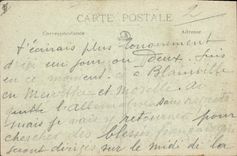 CARTE POSTALE
2
Correspondance
Adresse
t'écrirais plus longuement
d'ici un jour ou deux. Suis
en ce moment à Blainville
en Meurthe et Moselle. Ai
quitté l'Allemagne sans
mais je vais y retourner pour
chercher des blessés
seront dirigés sur le midi de la